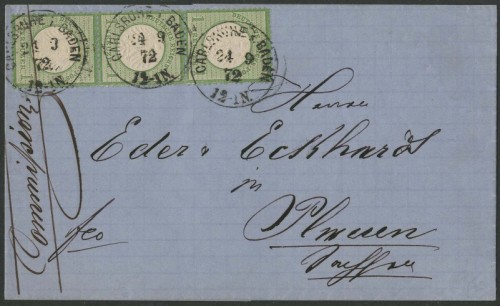 CARLSRUHE i. BADEN
24 9
72
12-1N.
CARLSRUHE i. BADEN
24 9
72
12-1N.
CARLSRUHE i. BADEN
24 9
72
12-1N.
Herren
Eder & Eckhardt
in
Plauen
Sachsen
fco